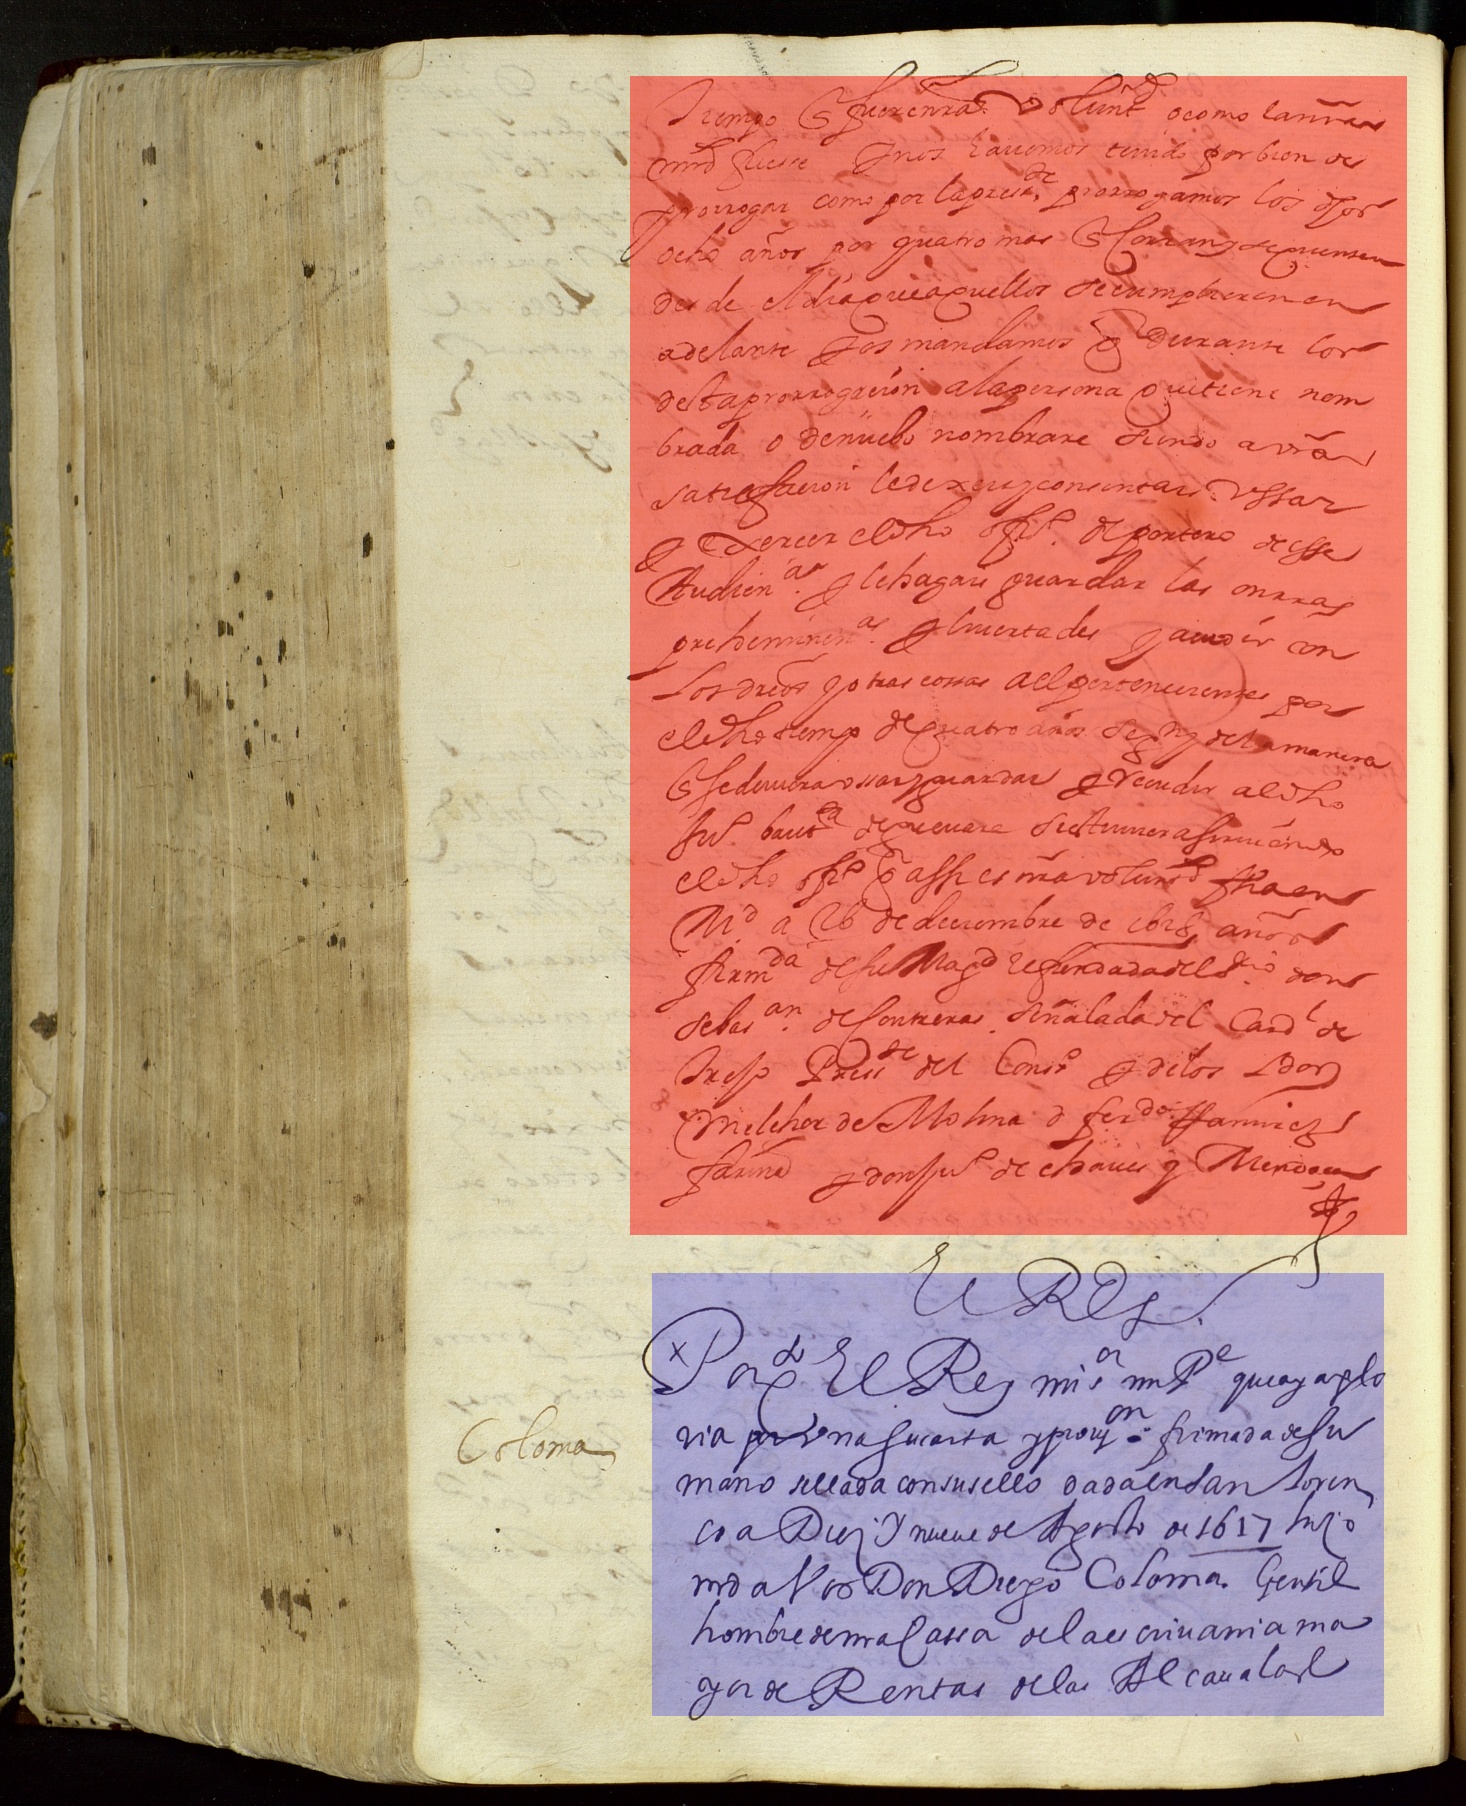 tiempo q fuere nra voluntd o como la nra
mrd fuese y nos havemos tenido por bien de
prorrogar como por la presente prorrogamos los dhos
ocho años por quatro mas q corran y se quenten
desde el dia que aquellos se cumplieren en
adelante y os mandamos q durante los
desta prorrogacion a la persona que tiene nom
brada o de nuebo nombrare siendo a vra
satisfacion le dexeis y consintais ussar
y exercer el dho offo de portero de esse
Audienas y le hagais guardar las onrras
prehemminenas y livertades y acudir con
los dros y otras cossas a el pertenecientes por
el dho tiempo de quatro años segn y de la manera
q se deviera ussar guardar y recudir al dho
Jun bauta de guevara si estuviera sirviendo
el dho offo q assi es mi voluntd fha en
Md a 26 de diciembre de 1628 años
firmda de su Magd refrendada del srio don
Sebasan de Contreras señalada del Cardl de
Trejo Presste del Consº y de los Ldos
Melchor de Molina d ferdo Ramirez
fariña y don Juº de chaves y Mendoça
El Rey
Coloma
Por qto El Rey mi sor mi Pe que aya glo
ria por una su carta y provion firmada de su
mano sellada con su sello dada en San Loren
co a Diez y nueve de Agosto de 1617 hizo
mrd a Vos Don Diego Coloma Gentil
hombre de mi Cassa de la escrivania ma
yor de Rentas de las Alcavalas